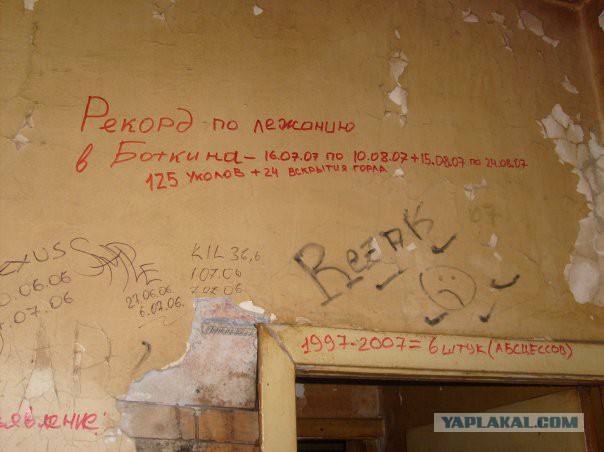 Рекорд по лежанию
в Боткина - 16.07.07 по 10.08.07 + 15.08.07 по 24.08.07
125 уколов + 24 вскрытия горла
KIL 36,6
1.07.06
7.07.06
27.06.06
6.07.06.
.06.06
.07.06
1997-2007 = 6 штук (АБСЦЕССОВ)
YAPLAKAL.COM